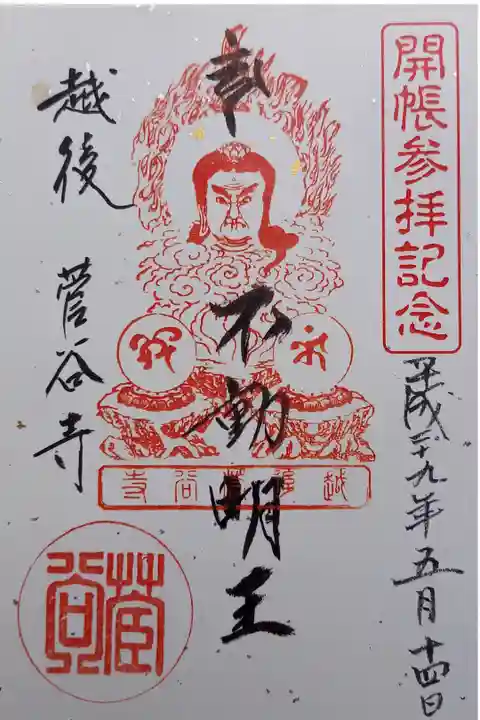 開帳参拝記念
平成二十九年五月十四日
奉
不動明王
越後 菅谷寺
越後菅谷寺
菅谷